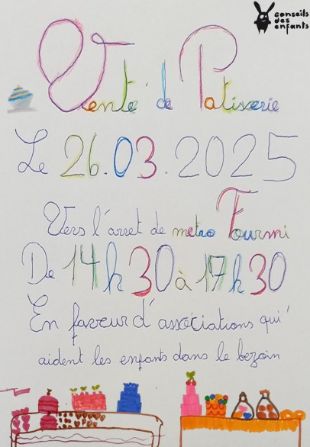 conseils
des
enfants
Vente de Patisserie
Le 26.03.2025
Vers l'arret de metro Fourmi
De 14h30 à 17h30
En faveur d'associations qui
aident les enfants dans le bezoin